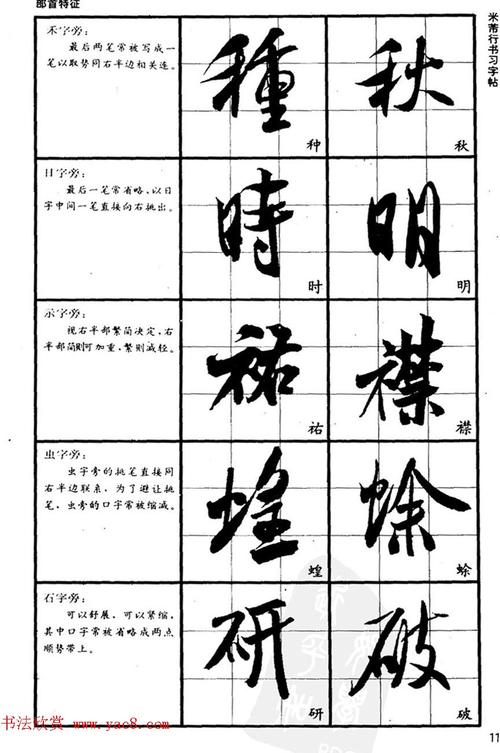 部首特征
米芾行书习字帖
禾字旁：
最后两笔常被写成一
笔以取势同右半边相关连。
種
种
秋
秋
日字旁：
最后一笔常省略，以日
字中间一笔直接向右挑出。
時
时
明
明
示字旁：
视右半部繁简决定，右
半部简则可加重，繁则减轻。
祐
祐
襟
襟
虫字旁：
虫字旁的挑笔直接同
右半边联系，为了避让挑
笔，虫旁的口字常被缩减。
蝗
蝗
蜍
蜍
石字旁：
可以舒展，可以紧缩，
其中口字常被省略成两点
顺势带上。
研
研
破
破
书法欣赏 www.yac8.com
11